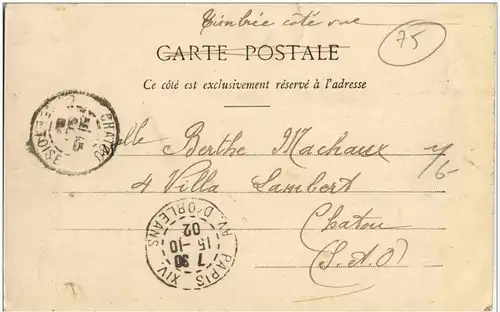 Timbrée côté vue
75
CARTE POSTALE
Ce côté est exclusivement réservé à l'adresse
CHATOU
ET OISE
Mlle Berthe Machaux
4 Villa Lambert
Chatou
(S.&O)
PARIS XIV
AV. D'ORLEANS
7 30
15 -10
02